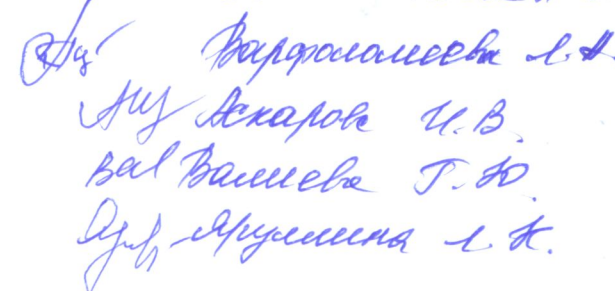 Варфоломеева Л.Н.
Аскарова И.В.
Вал Валиева Г.Ю.
Яруллина Л.К.